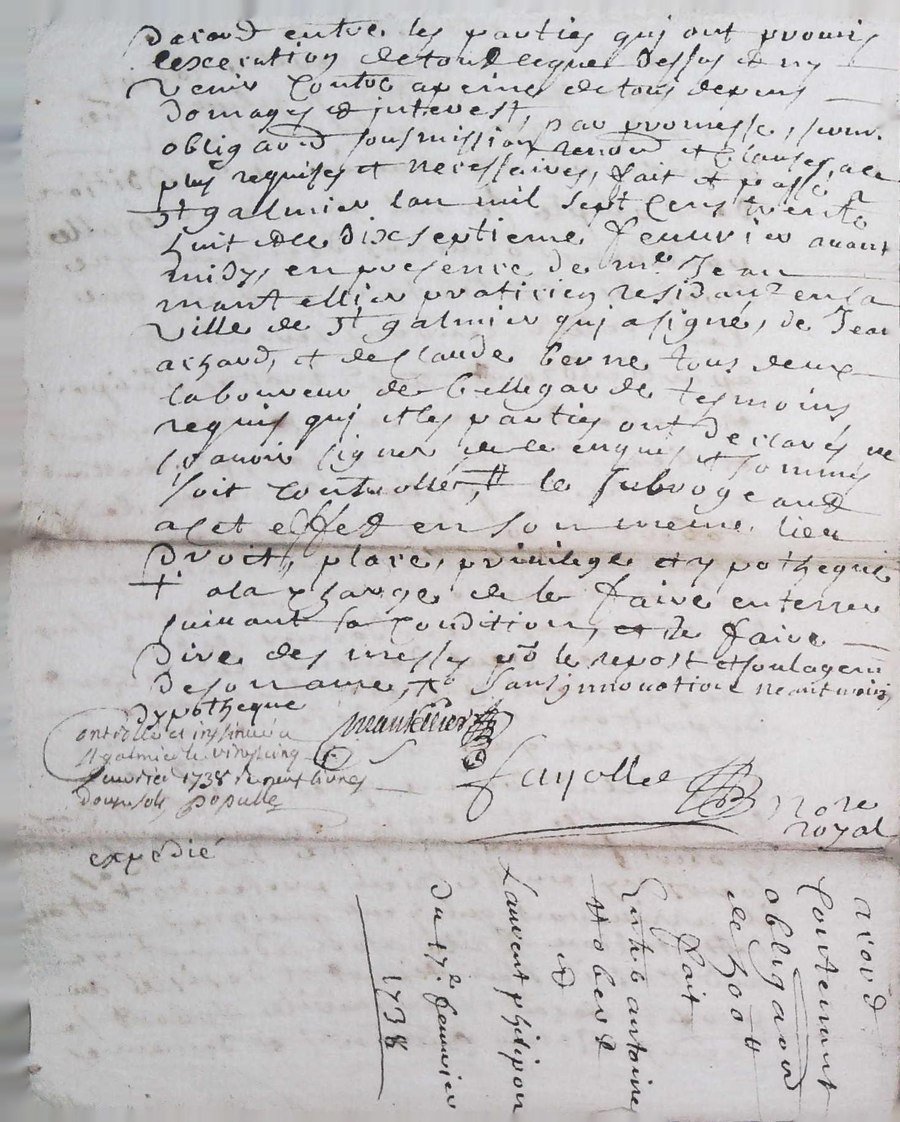 dacord entre les parties quj ont promis
lexecution detout ceque dessus et ny
venir contre apeine detous depens
domages et interest, par promesse, serm.
obligaõn sousmission renonõn et clauses, ace
plus requises et necessaires, fait et passé a
St galmier lan mil sept cens trente
huit et le dixseptieme feuurier auant
midy, en presence de me Jean
mantellier praticien residant en la
ville de St galmier quj a signé, de Jean
achard, et de Claude berne tous deux
laboureur de bellegarde tesmoins
requis quj et les parties ont declarés ne
scauoir signer de ce enquis et sommés
soit controllé, # le subrogeand
acet effed en son meme lieu
droit, place, priuilege et ypotheque
+ ala charge de le faire enterrer
suiuant sa condition, et de faire
dire des messes po le repost et soulagem
de son ame, +o sans jnnouation neantmoins
dypotheque
mantellier
Controllé et jnsinué a
St galmier le vingt cinq
feuurier 1738 recu neuf livres
douze sols populle
fayolle nore
royal
expedié
acord
Contenant
obligaõn
de 300 #
fait
Entre antoine
et
Laurent philipon
du 17e feuurier
1738